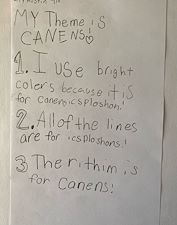 MY Theme is
CANENS!
1. I use bright
colers because it is
for canenicsploshon!
2. All of the lines
are for icsploshons.!
3 The rithim is
for Canens!